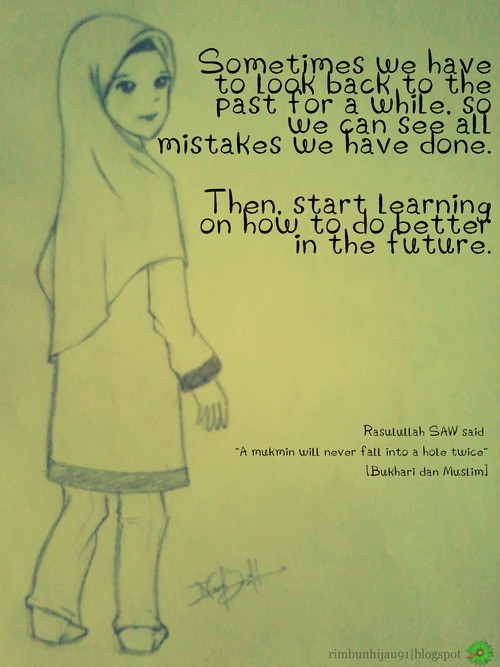 Sometimes we have
to look back to the
past for a while, so
we can see all
mistakes we have done.
Then, start learning
on how to do better
in the future.
Rasulullah SAW said
"A mukmin will never fall into a hole twice"
[Bukhari dan Muslim]
rimbunhijau91|blogspot